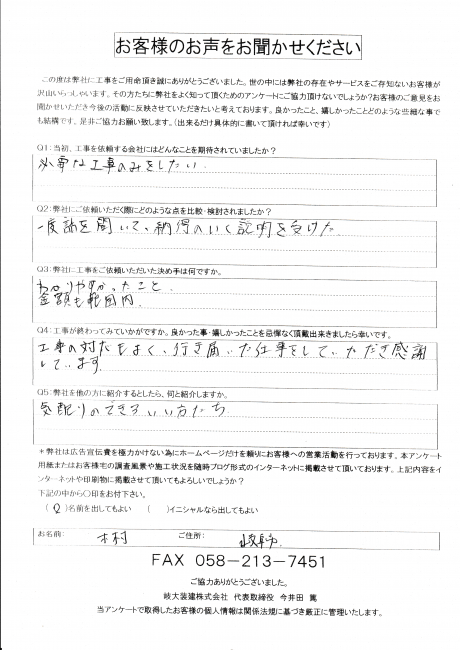 お客様のお声をお聞かせください
この度は弊社に工事をご用命頂き誠にありがとうございました。世の中には弊社の存在やサービスをご存知ないお客様が
沢山いらっしゃいます。その方たちに弊社をよく知って頂くためのアンケートにご協力頂けないでしょうか?お客様のご意見をお
聞かせいただき今後の活動に反映させていただきたいと考えております。良かったこと、嬉しかったことどのような些細な事で
も結構です。是非ご協力お願い致します。(出来るだけ具体的に書いて頂ければ幸いです)
Q1:当初、工事を依頼する会社にはどんなことを期待されていましたか?
必要な工事のみをしたい.
Q2:弊社にご依頼いただく際にどのような点を比較・検討されましたか?
一度話を聞いて、納得のいく説明を受けた
Q3:弊社に工事をご依頼いただいた決め手は何ですか。
わかりやすかったこと.
金額も範囲内.
Q4:工事が終わってみていかがですか。良かった事・嬉しかったことを忌憚なく頂戴出来きましたら幸いです。
工事の対応もよく、行き届いた仕事をしていただき感謝
しています.
Q5:弊社を他の方に紹介するとしたら、何と紹介しますか。
気配りのできるいい方たち
*弊社は広告宣伝費を極力かけない為にホームページだけを頼りにお客様への営業活動を行っております。本アンケート
用紙またはお客様宅の調査風景や施工状況を随時ブログ形式のインターネットに掲載させて頂いております。上記内容をイ
ンターネットや印刷物に掲載させて頂いてもよろしいでしょうか?
下記の中から〇印をお付下さい。
(〇)名前を出してもよい ( )イニシャルなら出してもよい
お名前: 木村 ご住所: 岐阜市
FAX 058-213-7451
ご協力ありがとうございました。
岐大装建株式会社 代表取締役 今井田 篤
当アンケートで取得したお客様の個人情報は関係法規に基づき厳正に管理いたします。